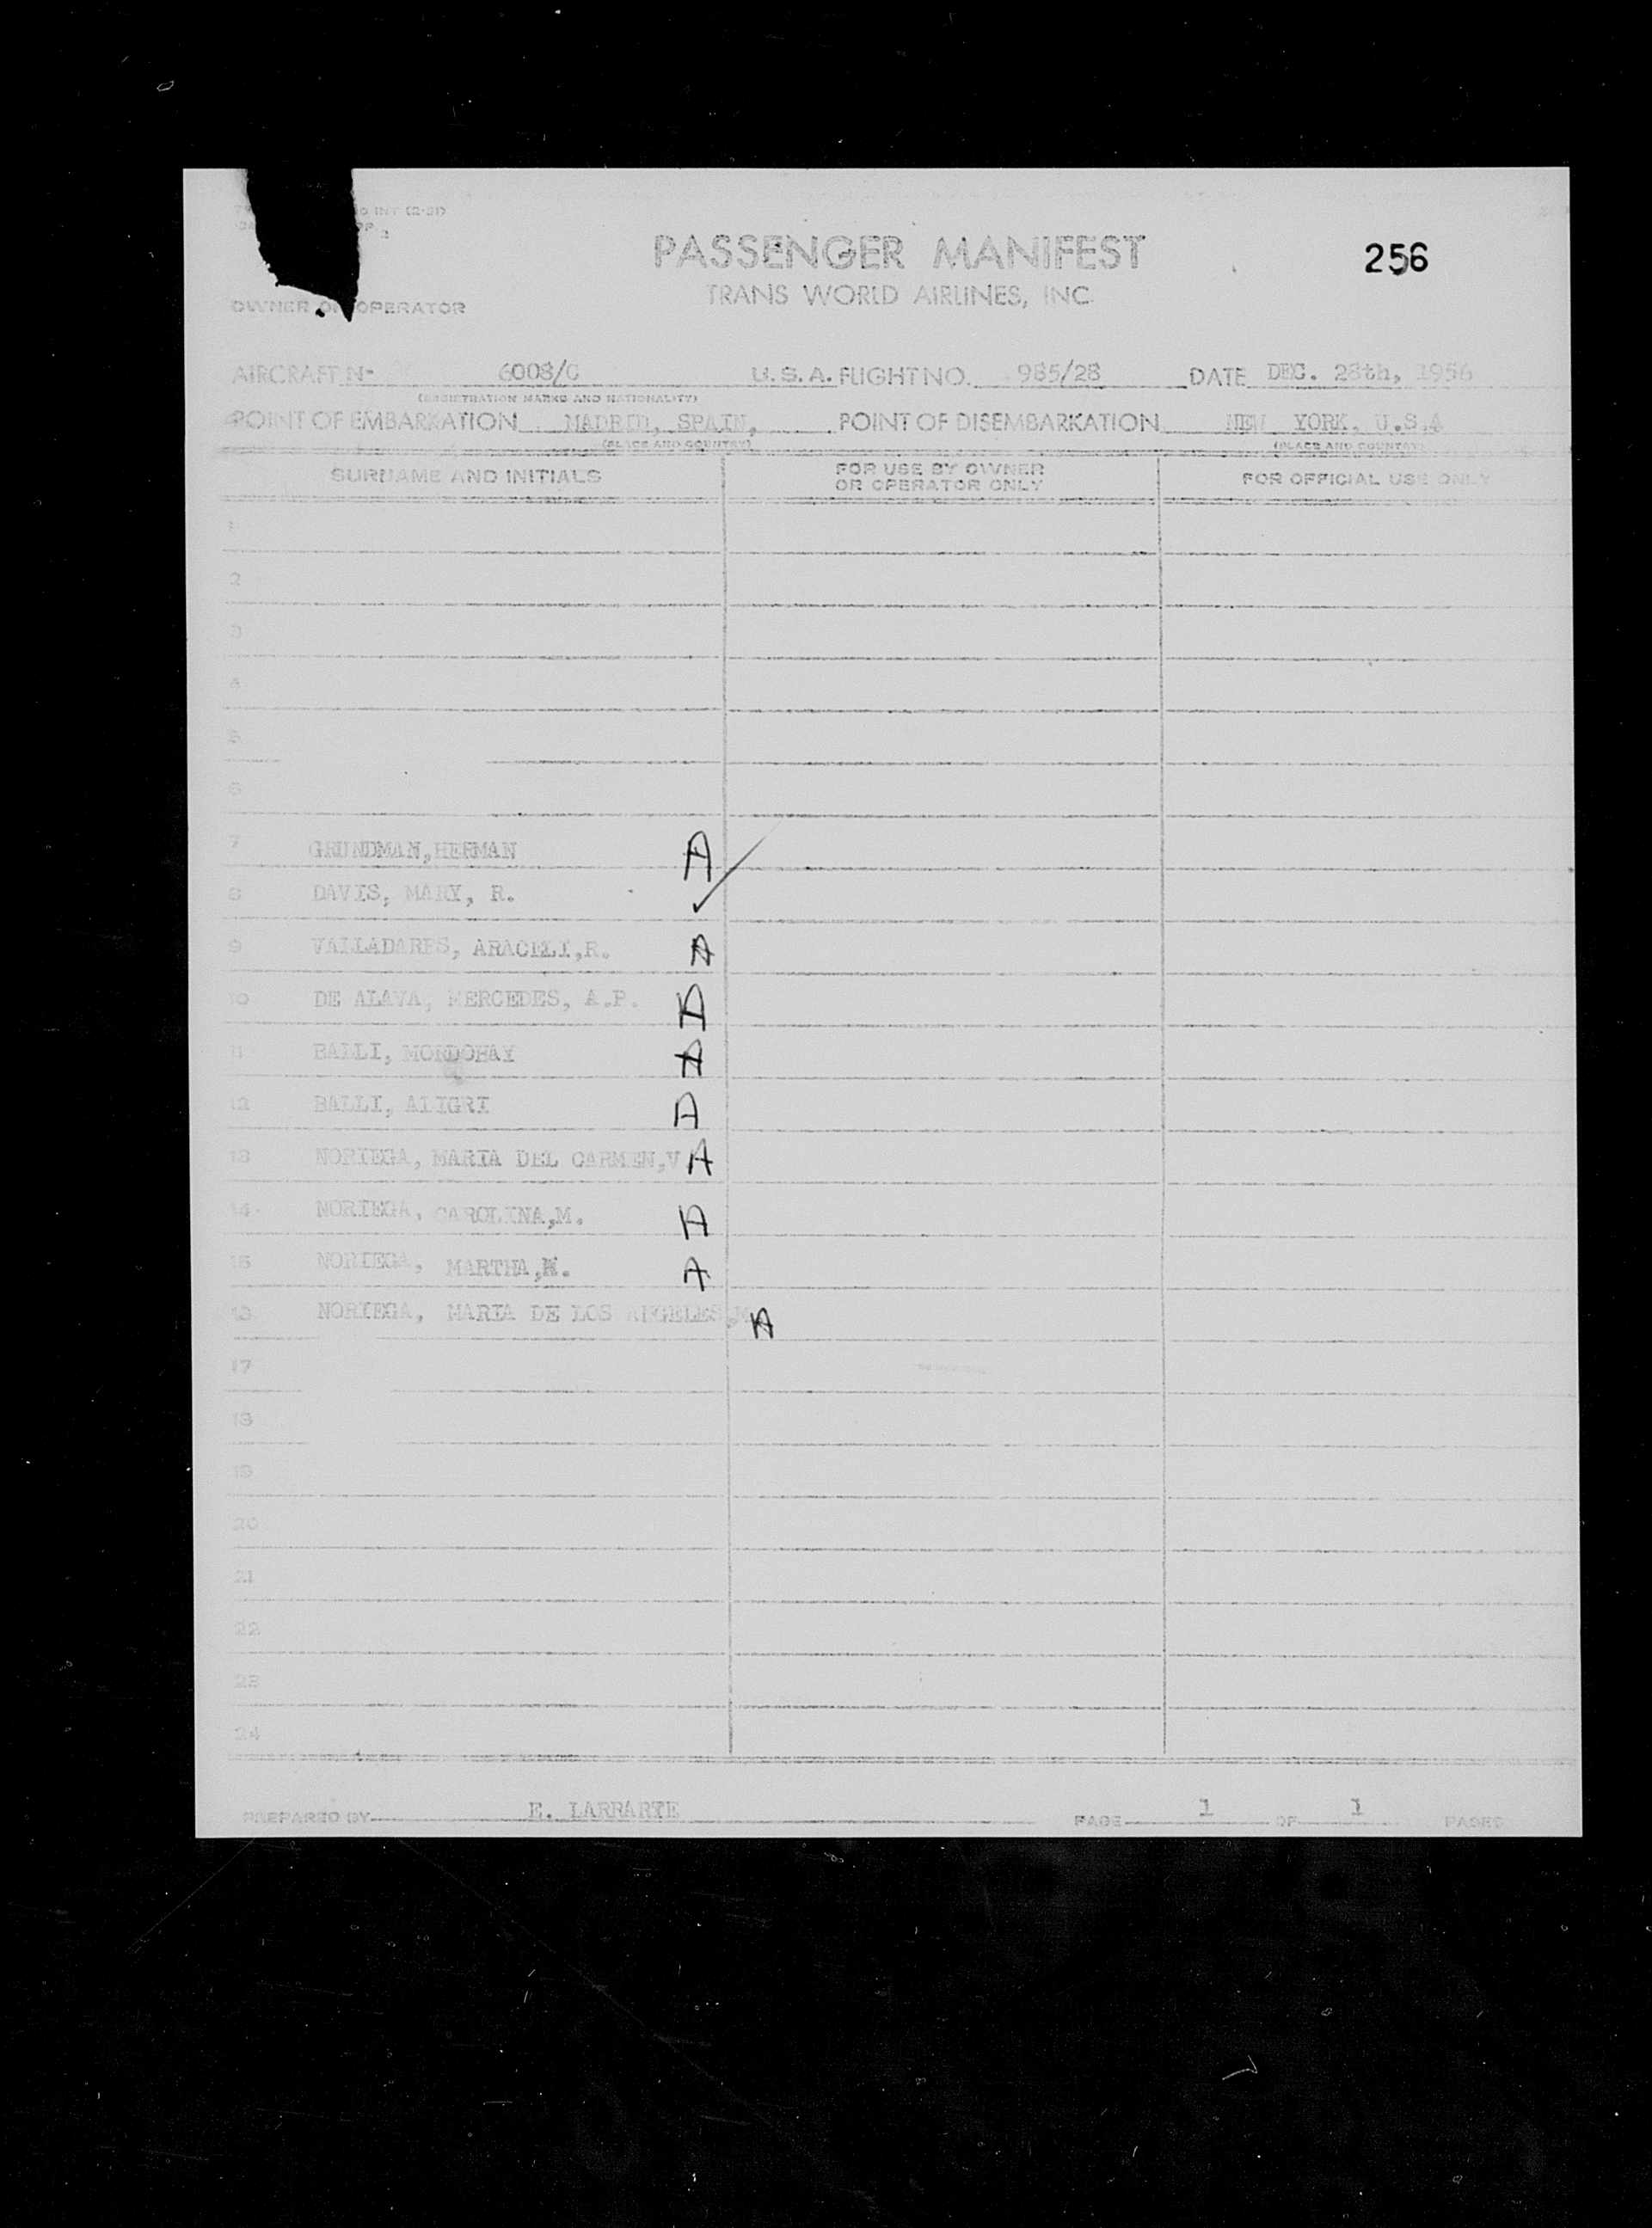 INT (2-51)
PASSENGER MANIFEST
256
TRANS WORLD AIRLINES, INC
OWNER OR OPERATOR
AIRCRAFT Nº 6008/C U.S.A. FLIGHT NO. 985/28 DATE DEC. 28th, 1956
(REGISTRATION MARKS AND NATIONALITY)
POINT OF EMBARKATION MADRID, SPAIN, POINT OF DISEMBARKATION NEW YORK, U.S.A
(PLACE AND COUNTRY) (PLACE AND COUNTRY)
SURNAME AND INITIALS FOR USE BY OWNER OR OPERATOR ONLY FOR OFFICIAL USE ONLY
1
2
3
4
5
6
7 GRUNDMAN,HERMAN A
8 DAVIS, MARY, R. ✓
9 VALLADARES, ARACELI,R. A
10 DE ALAVA, MERCEDES, A.P. A
11 BALLI, MORDOHAY A
12 BALLI, ALIGRI A
13 NORIEGA, MARIA DEL CARMEN,V A
14 NORIEGA, CAROLINA,M. A
15 NORIEGA, MARTHA, A
16 NORIEGA, MARIA DE LOS ANGELES,M A
17
18
19
20
21
22
23
24
PREPARED BY E. LARRARTE PAGE 1 OF 1 PAGES